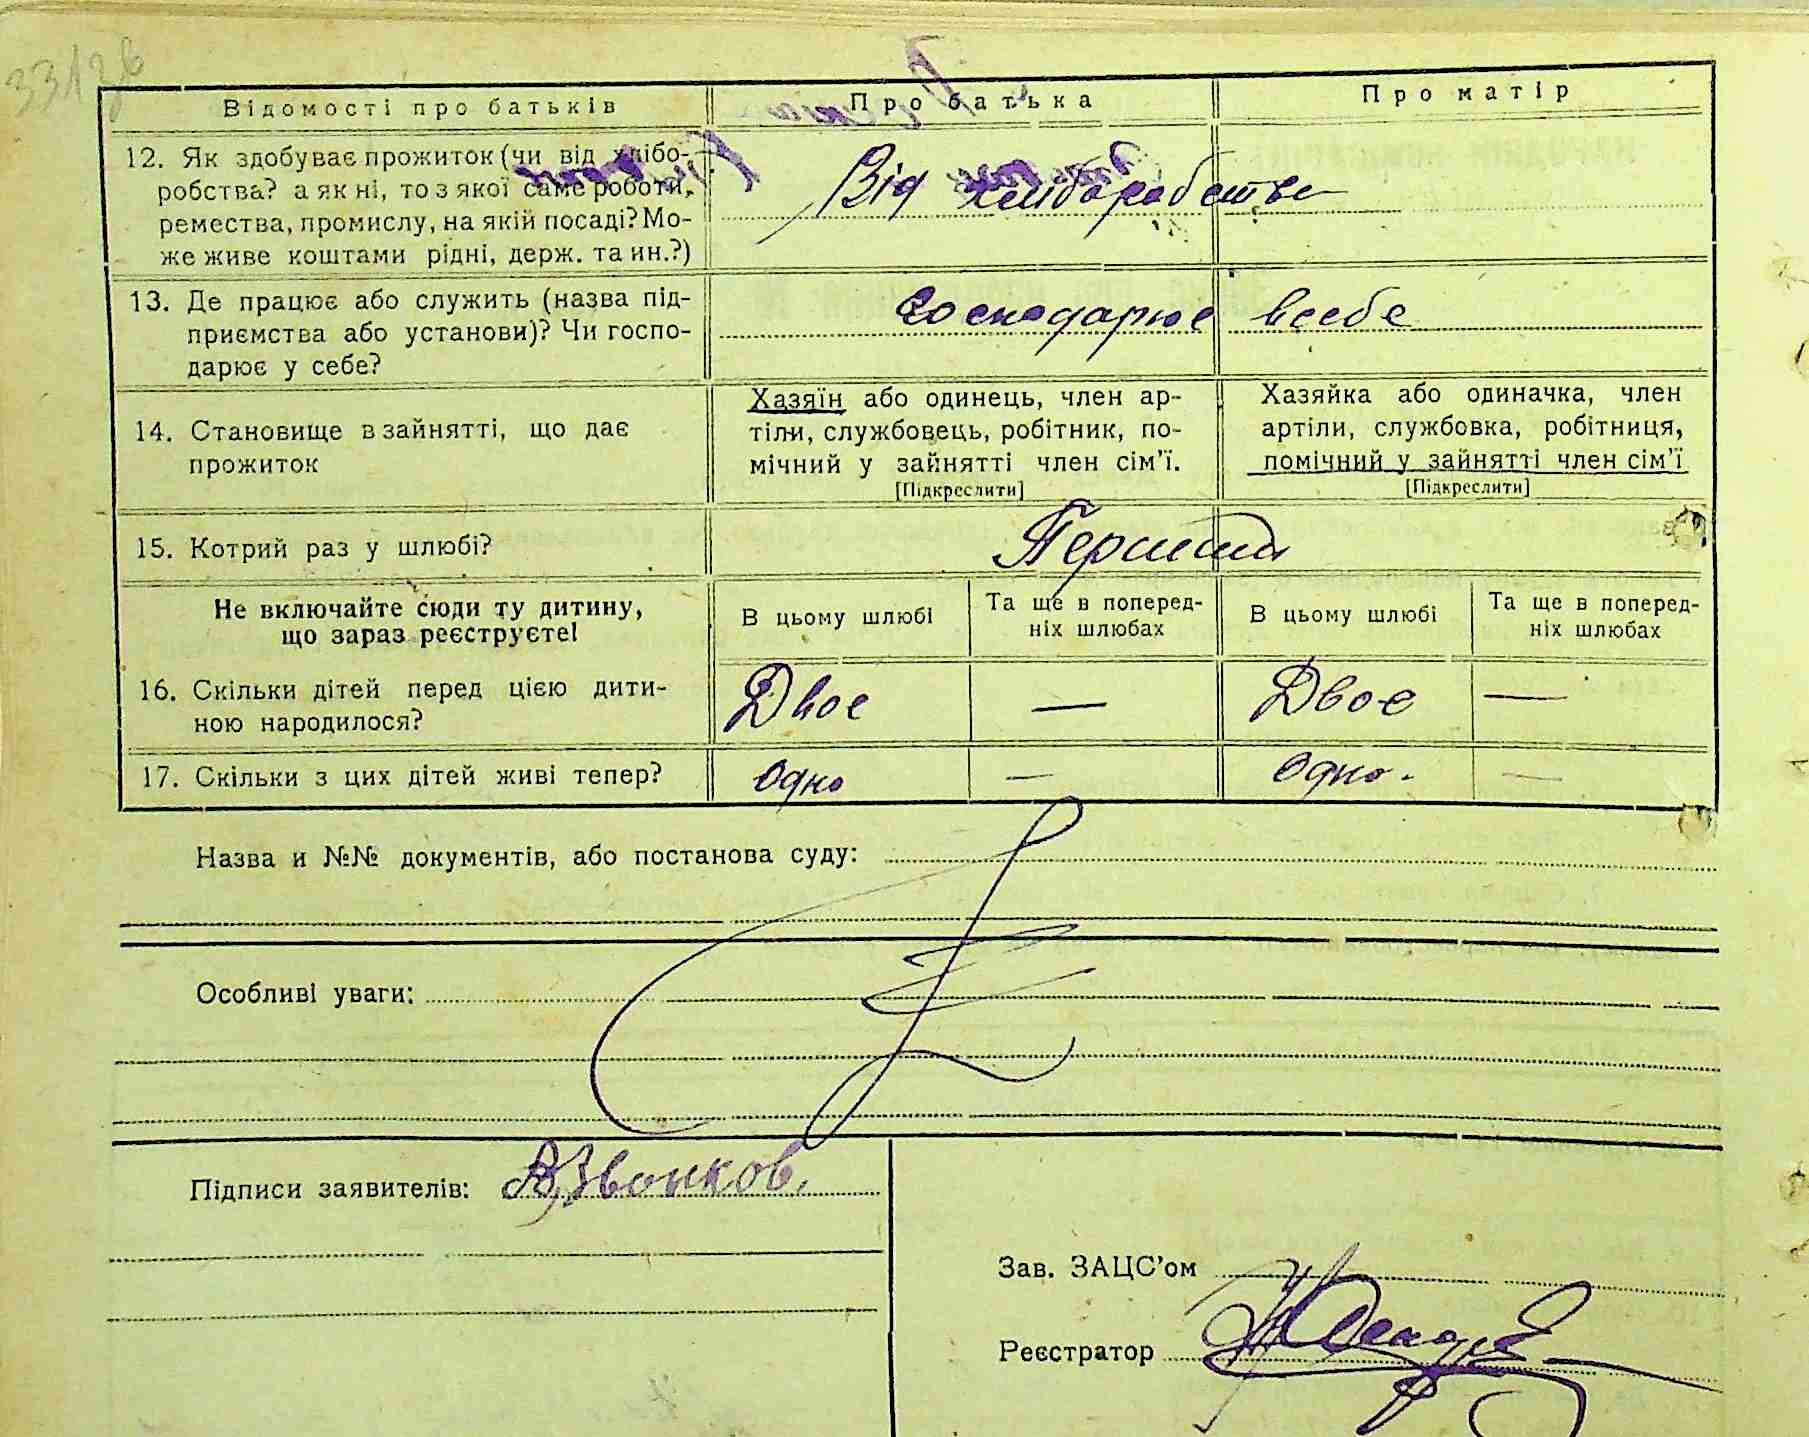 Відомості про батьків
Про батька
Про матір
12. Як здобуває прожиток (чи від хлібо-
робства? а як ні, то з якої саме роботи,
ремества, промислу, на якій посаді? Мо-
же живе коштами рідні, держ. та ин.?)
Від хліборобства
13. Де працює або служить (назва під-
приємства або установи)? Чи госпо-
дарює у себе?
господарює всебе
14. Становище в зайнятті, що дає
прожиток
Хазяїн або одинець, член ар-
тіли, службовець, робітник, по-
мічний у зайнятті член сім'ї.
[Підкреслити]
Хазяйка або одиначка, член
артіли, службовка, робітниця,
помічний у зайнятті член сім'ї
[Підкреслити]
15. Котрий раз у шлюбі?
Не включайте сюди ту дитину,
що зараз реєструєте!
В цьому шлюбі
Та ще в поперед-
ніх шлюбах
В цьому шлюбі
Та ще в поперед-
ніх шлюбах
16. Скільки дітей перед цією дити-
ною народилося?
Двоє
—
Двоє
—
17. Скільки з цих дітей живі тепер?
одно
—
одно.
—
Назва и №№ документів, або постанова суду:
Особливі уваги:
Підписи заявителів: Звонков.
Зав. ЗАЦС'ом
Реєстратор